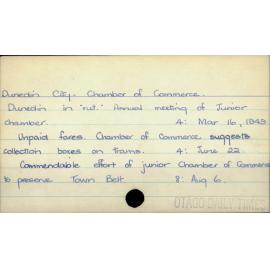 Dunedin City. Chamber of Commerce.
Dunedin in "rut." Annual meeting of Junior
chamber. 4: Mar 16, 1949
Unpaid fares. Chamber of Commerce suggests
collection boxes on trams. 4: June 22.
Commendable effort of junior Chamber of Commerce
to preserve Town Belt. 8: Aug 6.
OTAGO DAILY TIMES